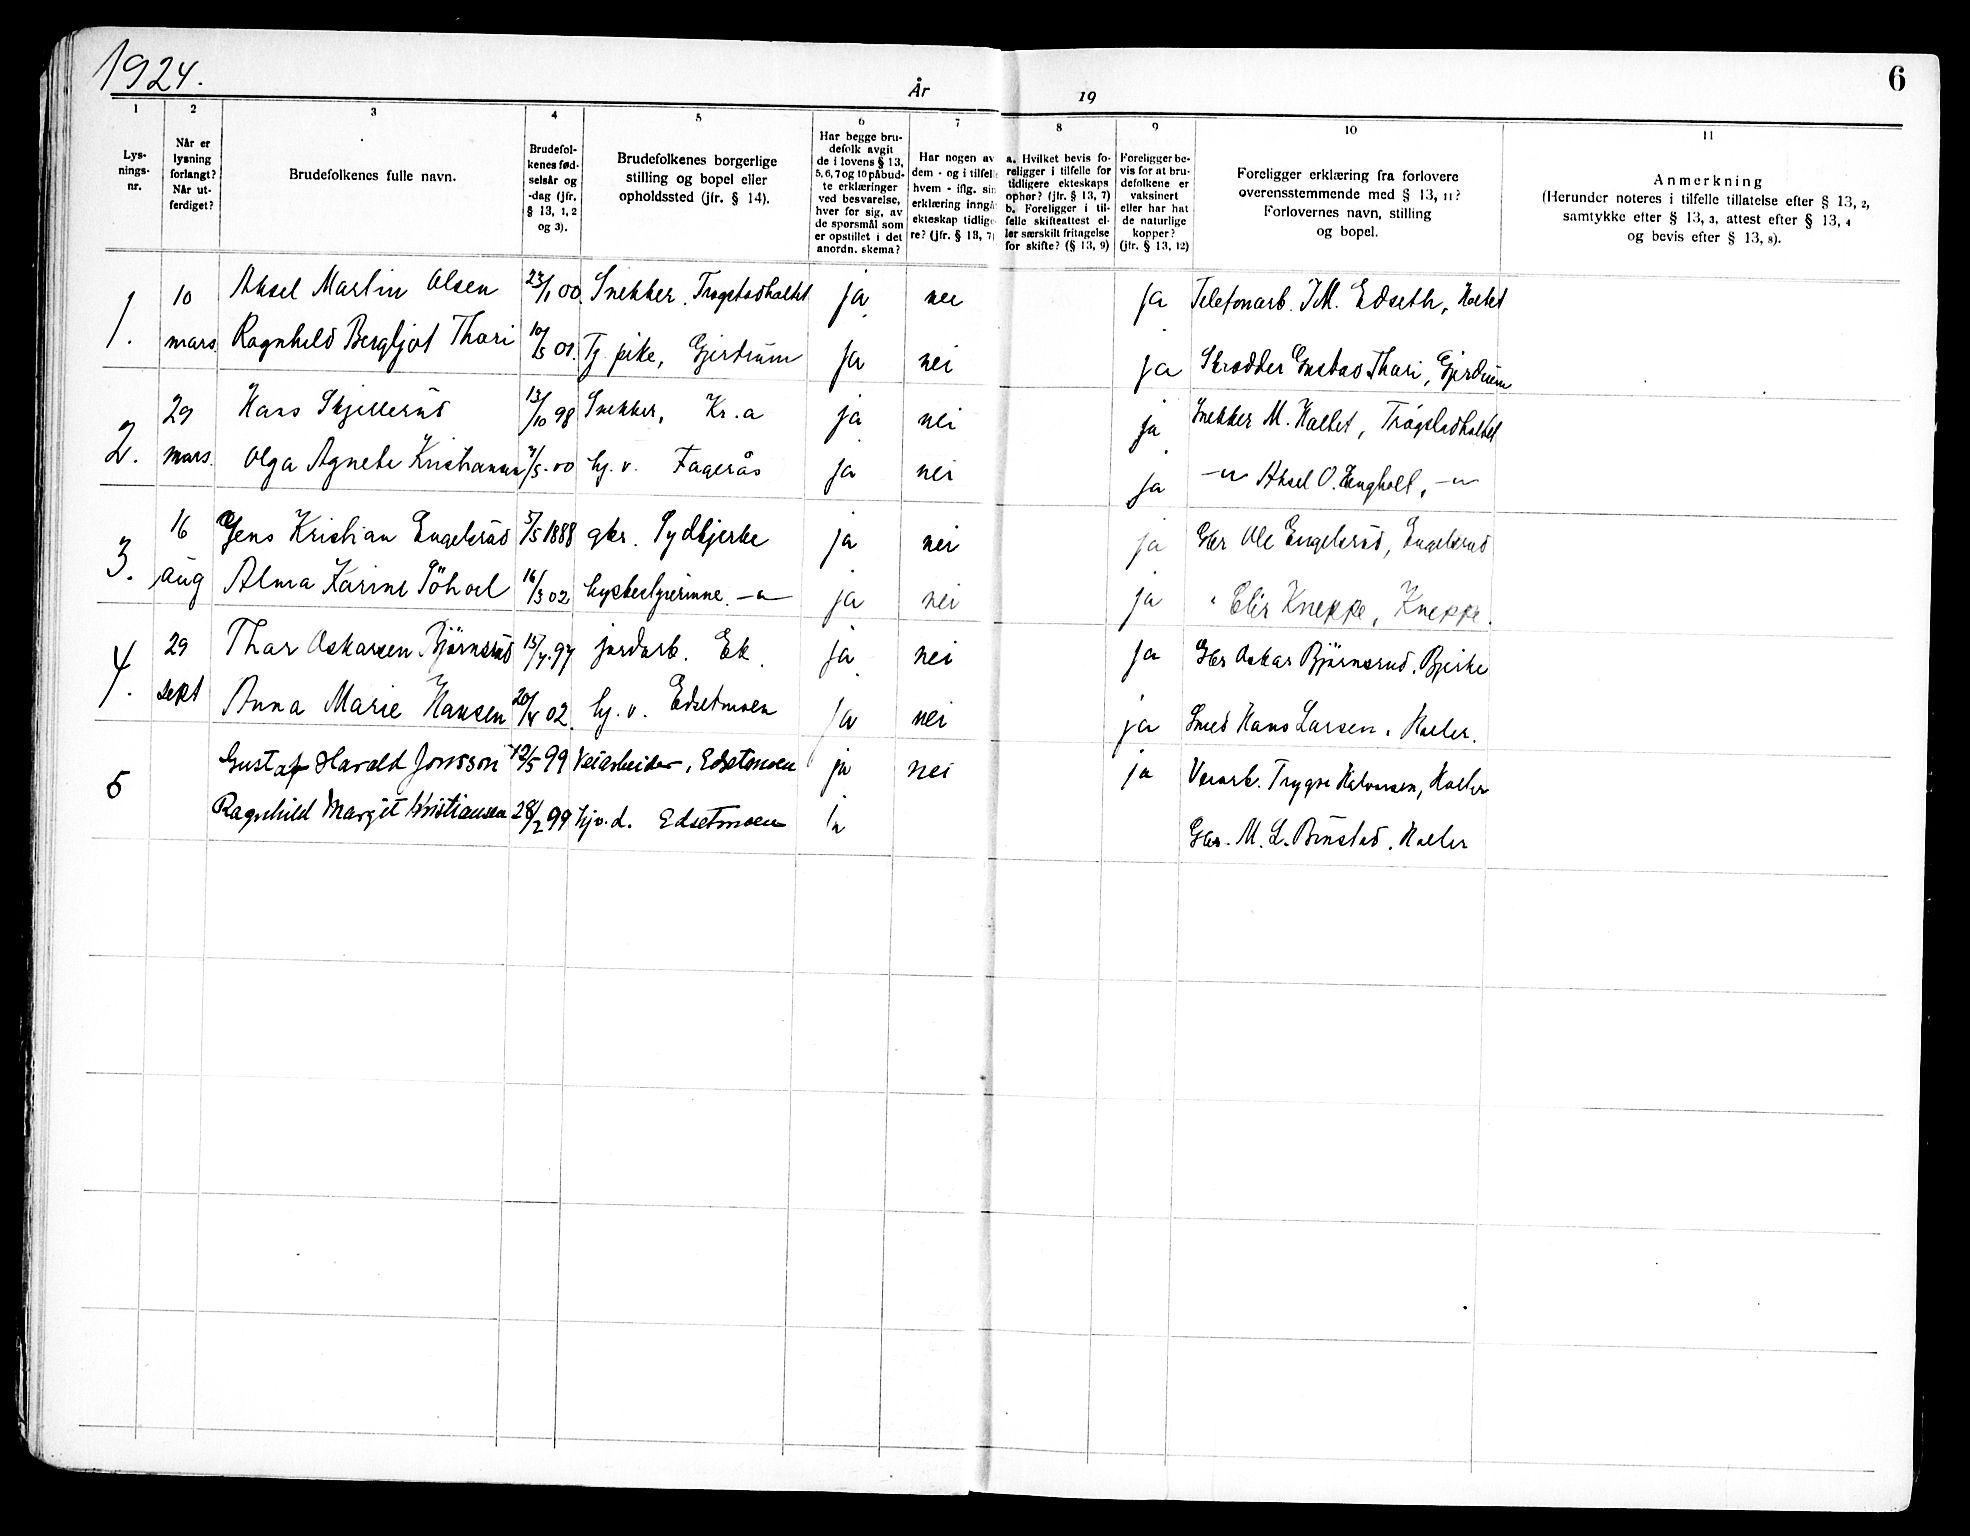 1924.
År
19
6
1
2
3
4
5
6
7
8
9
10
11
Lys-
nings-
nr.
Når er
lysning
forlangt?
Når ut-
ferdiget?
Brudefolkenes fulle navn.
Brudefol-
kenes fød-
selsår og
-dag (jfr.
§ 13, 1, 2
og 3).
Brudefolkenes borgerlige
stilling og bopel eller
opholdssted (jfr. § 14).
Har begge bru-
defolk avgit
de i lovens § 13,
5, 6, 7 og 10 påbud-
te erklæringer
ved besvarelse,
hver for sig, av
de spørsmål som
er opstillet i det
anordn. skema?
Har nogen av
dem - og i tilfelle
hvem - iflg. sin
erklæring inngå
ekteskap tidlige-
re? (jfr. § 13, 7)
a. Hvilket bevis fo-
religger i tilfelle for
tidligere ekteskaps
ophør? (jfr. § 13, 7)
b. Foreligger i til-
felle skifteattest el-
ler særskilt fritagelse
for skifte? (§ 13, 9)
Foreligger be-
vis for at bru-
defolkene er
vaksinert
eller har hat
de naturlige
kopper?
(jfr. § 13, 12)
Foreligger erklæring fra forlovere
overensstemmende med § 13, 11?
Forlovernes navn, stilling
og bopel.
Anmerkning
(Herunder noteres i tilfelle tillatelse efter § 13, 2,
samtykke efter § 13, 3, attest efter § 13, 4
og bevis efter § 13, 8).
1. 10 Aksel Martin Olsen 23/1 00. Snekker. Trøgstadholtet ja nei ja Telefonarb. Edseth, Holtet
mars. Ragnhild Bergljot Thori 10/5 01. Tj. pike, Gjerdrum ja nei ja Skrædder Gustav Thori, Gjerdrum
2. 29 Hans Skjellerud 13/10 98 Snekker, Kr.a ja nei ja Snekker M. Holtet, Trøgstadholtet
mars. Olga Agnete Kristiansen /5-00 hj. v. Fagerås ja nei ja -"- Aksel O. Engholt, -"-
3. 16 Jens Kristian Engelsrud 5/5 1888 gbr. Sydbjerke ja nei ja Gbr Ole Engelsrud, Engelsrud
aug Alma Karine 16/3 02 husbestyrerinne. -"- ja nei ja " Elis Kneppe, Kneppe.
4. 29 Thor Oskarsen Bjørnsrud 15/7.97 jordarb. Ek. ja nei ja Gbr Oskar Bjørnsrud. Bjerke
sept Anna Marie Hansen 20/4 02. hj. v. Edsetmoen ja nei ja Smed Hans Larsen. Holter.
5 Gustaf Harald Jonsson 12/5 99 Veiarbeider, Edsetmoen ja nei ja Veiarb. Trygve Halvorsen, Holter
Ragnhild Margit Kristiansen 28/2 99 hjv.d. Edsetmoen ja Gbr. M. L. Bønstad. Holter